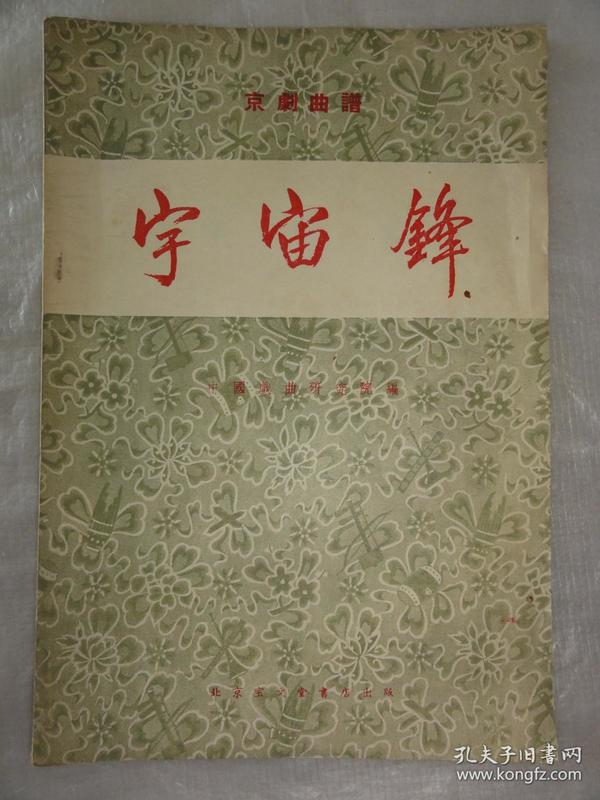 京劇曲譜
宇宙鋒
中國戲曲研究院編
北京宝文堂書店出版
孔夫子旧書网
www.kongfz.com